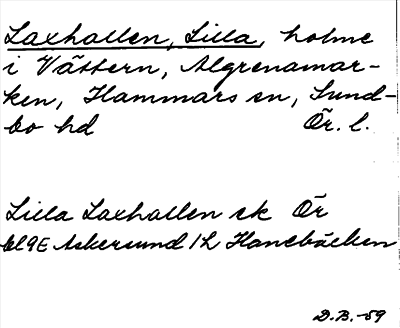 Laxhallen, Lilla, holme
i Vättern, Algrenamar-
ken, Hammars sn, Sund-
bo hd Ör. l.
Lilla Laxhallen ek Ör
bl 9E Askersund 1h Hanebäcken
D.B. -59